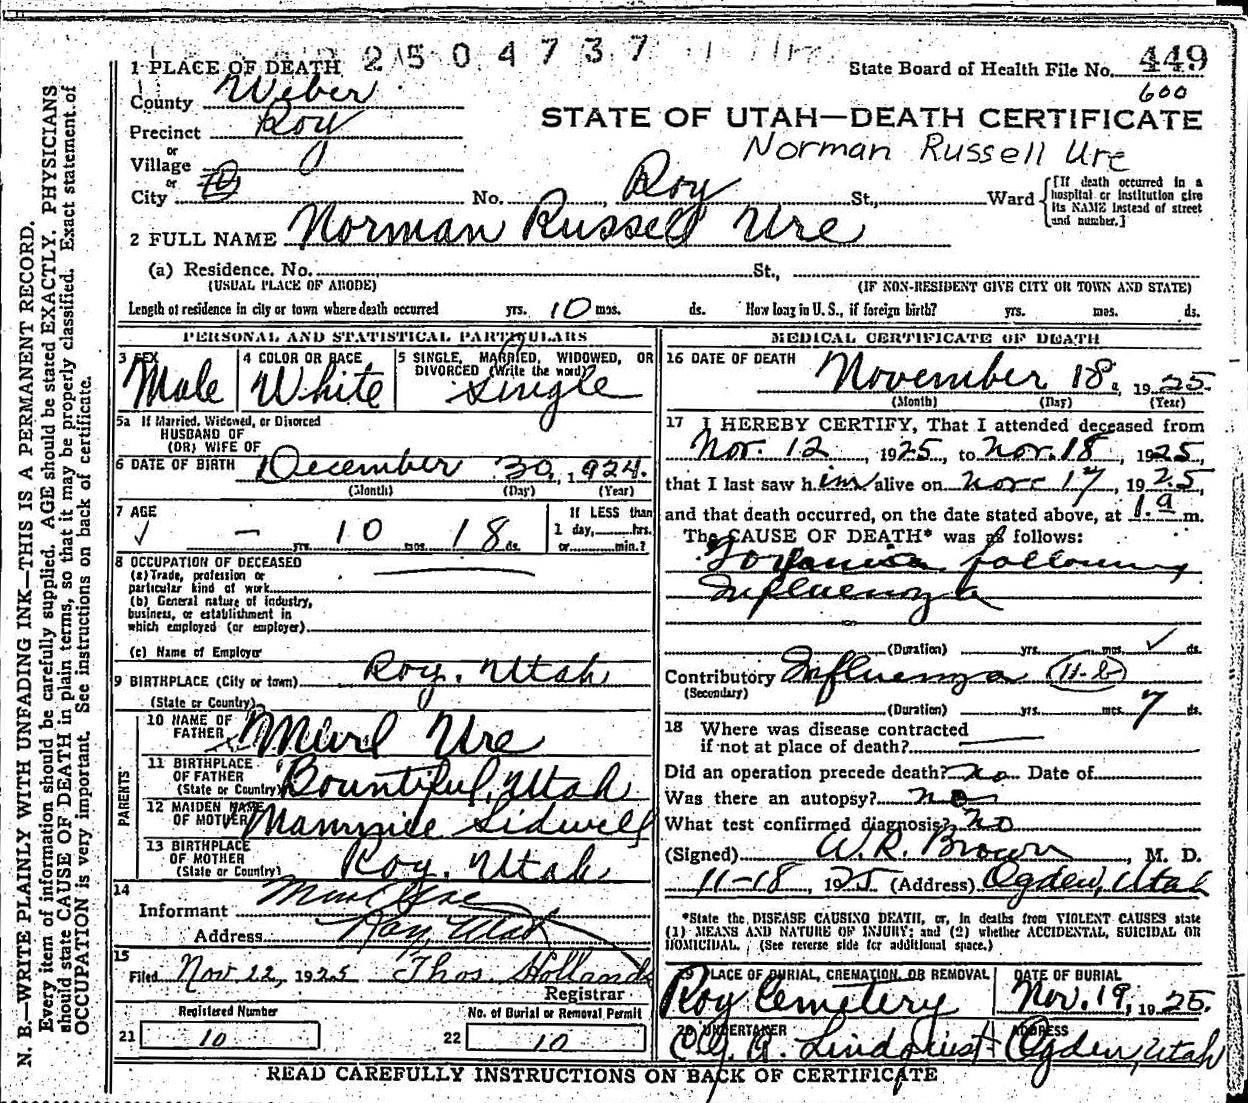 2504737
1 PLACE OF DEATH
State Board of Health File No. 449
600
County Weber
STATE OF UTAH—DEATH CERTIFICATE
Precinct Roy
Norman Russell Ure
or
Village
or
City
No. , Roy St., Ward
[If death occurred in a hospital or institution give its NAME instead of street and number.]
2 FULL NAME Norman Russell Ure
(a) Residence. No. St.,
(USUAL PLACE OF ABODE) (IF NON-RESIDENT GIVE CITY OR TOWN AND STATE)
Length of residence in city or town where death occurred yrs. 10 mos. ds. How long in U. S., if foreign birth? yrs. mos. ds.
PERSONAL AND STATISTICAL PARTICULARS
3 SEX
Male
4 COLOR OR RACE
White
5 SINGLE, MARRIED, WIDOWED, OR DIVORCED (Write the word)
Single
5a If Married, Widowed, or Divorced
HUSBAND OF
(OR) WIFE OF
6 DATE OF BIRTH December 30, 1924.
(Month) (Day) (Year)
7 AGE
— yrs. 10 mos. 18 ds.
If LESS than
1 day, hrs.
or min.?
8 OCCUPATION OF DECEASED
(a) Trade, profession or
particular kind of work
(b) General nature of industry,
business, or establishment in
which employed (or employer)
(c) Name of Employer
9 BIRTHPLACE (City or town) Roy, Utah
(State or Country)
PARENTS
10 NAME OF FATHER Murl Ure
11 BIRTHPLACE OF FATHER (State or Country) Bountiful, Utah
12 MAIDEN NAME OF MOTHER Sidwell
13 BIRTHPLACE OF MOTHER (State or Country) Roy, Utah
14
Informant Murl Ure
Address Roy, Utah
15
Filed Nov 22, 1925 Thos Hollands
Registrar
Registered Number
21 10
No. of Burial or Removal Permit
22 10
MEDICAL CERTIFICATE OF DEATH
16 DATE OF DEATH
November 18, 1925.
(Month) (Day) (Year)
17 I HEREBY CERTIFY, That I attended deceased from
Nov. 12, 1925, to Nov. 18, 1925,
that I last saw him alive on Nov 17, 1925,
and that death occurred, on the date stated above, at 1 a m.
The CAUSE OF DEATH* was as follows:
following
Influenza
(Duration) yrs. mos. ds.
Contributory Influenza (11-b)
(Secondary)
(Duration) yrs. mos. 7 ds.
18 Where was disease contracted
if not at place of death?
Did an operation precede death? no Date of
Was there an autopsy? no
What test confirmed diagnosis? no
(Signed) W. R. Brown, M. D.
11-18, 1925 (Address) Ogden, Utah
*State the DISEASE CAUSING DEATH, or, in deaths from VIOLENT CAUSES state
(1) MEANS AND NATURE OF INJURY; and (2) whether ACCIDENTAL, SUICIDAL OR
HOMICIDAL. (See reverse side for additional space.)
19 PLACE OF BURIAL, CREMATION, OR REMOVAL
Roy Cemetery
DATE OF BURIAL
Nov. 19, 1925.
20 UNDERTAKER
Lindquist
ADDRESS
Ogden, Utah
READ CAREFULLY INSTRUCTIONS ON BACK OF CERTIFICATE
N. B.—WRITE PLAINLY WITH UNFADING INK—THIS IS A PERMANENT RECORD.
Every item of information should be carefully supplied. AGE should be stated EXACTLY. PHYSICIANS
should state CAUSE OF DEATH in plain terms, so that it may be properly classified. Exact statement of
OCCUPATION is very important. See instructions on back of certificate.